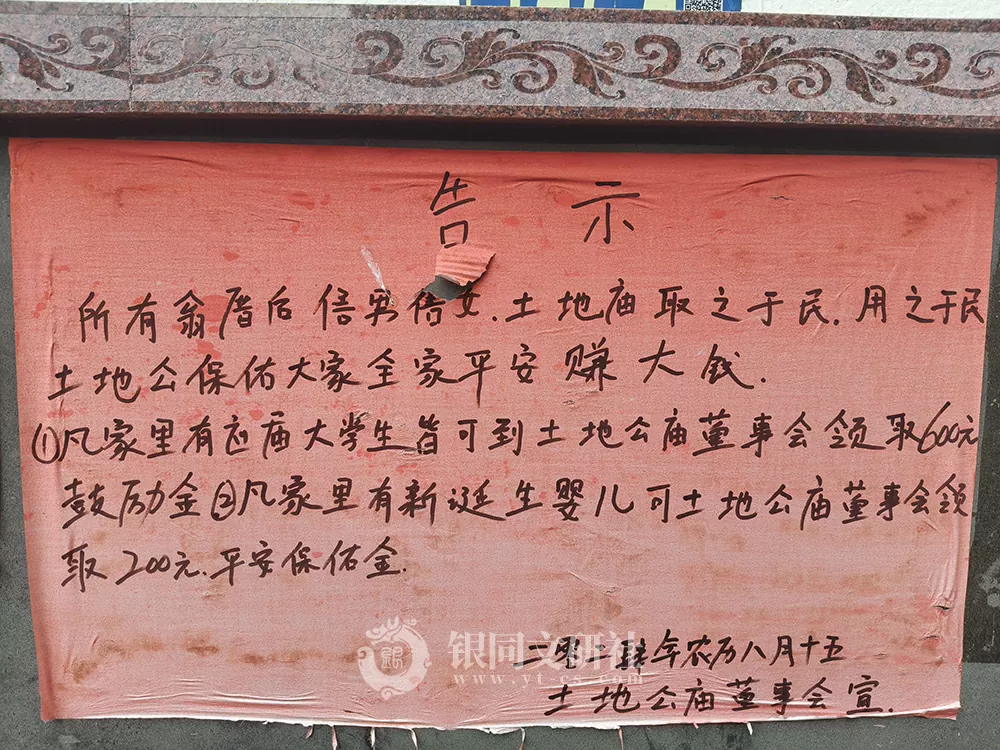 告示
所有翁厝后信男信女.土地庙取之于民.用之于民
土地公保佑大家全家平安赚大钱.
①凡家里有应届大学生皆可到土地公庙董事会领取600元
鼓励金②凡家里有新诞生婴儿可土地公庙董事会领
取200元.平安保佑金.
二零二肆年农历八月十五
土地公庙董事会宣.
银同文研社
www.yt-cs.com